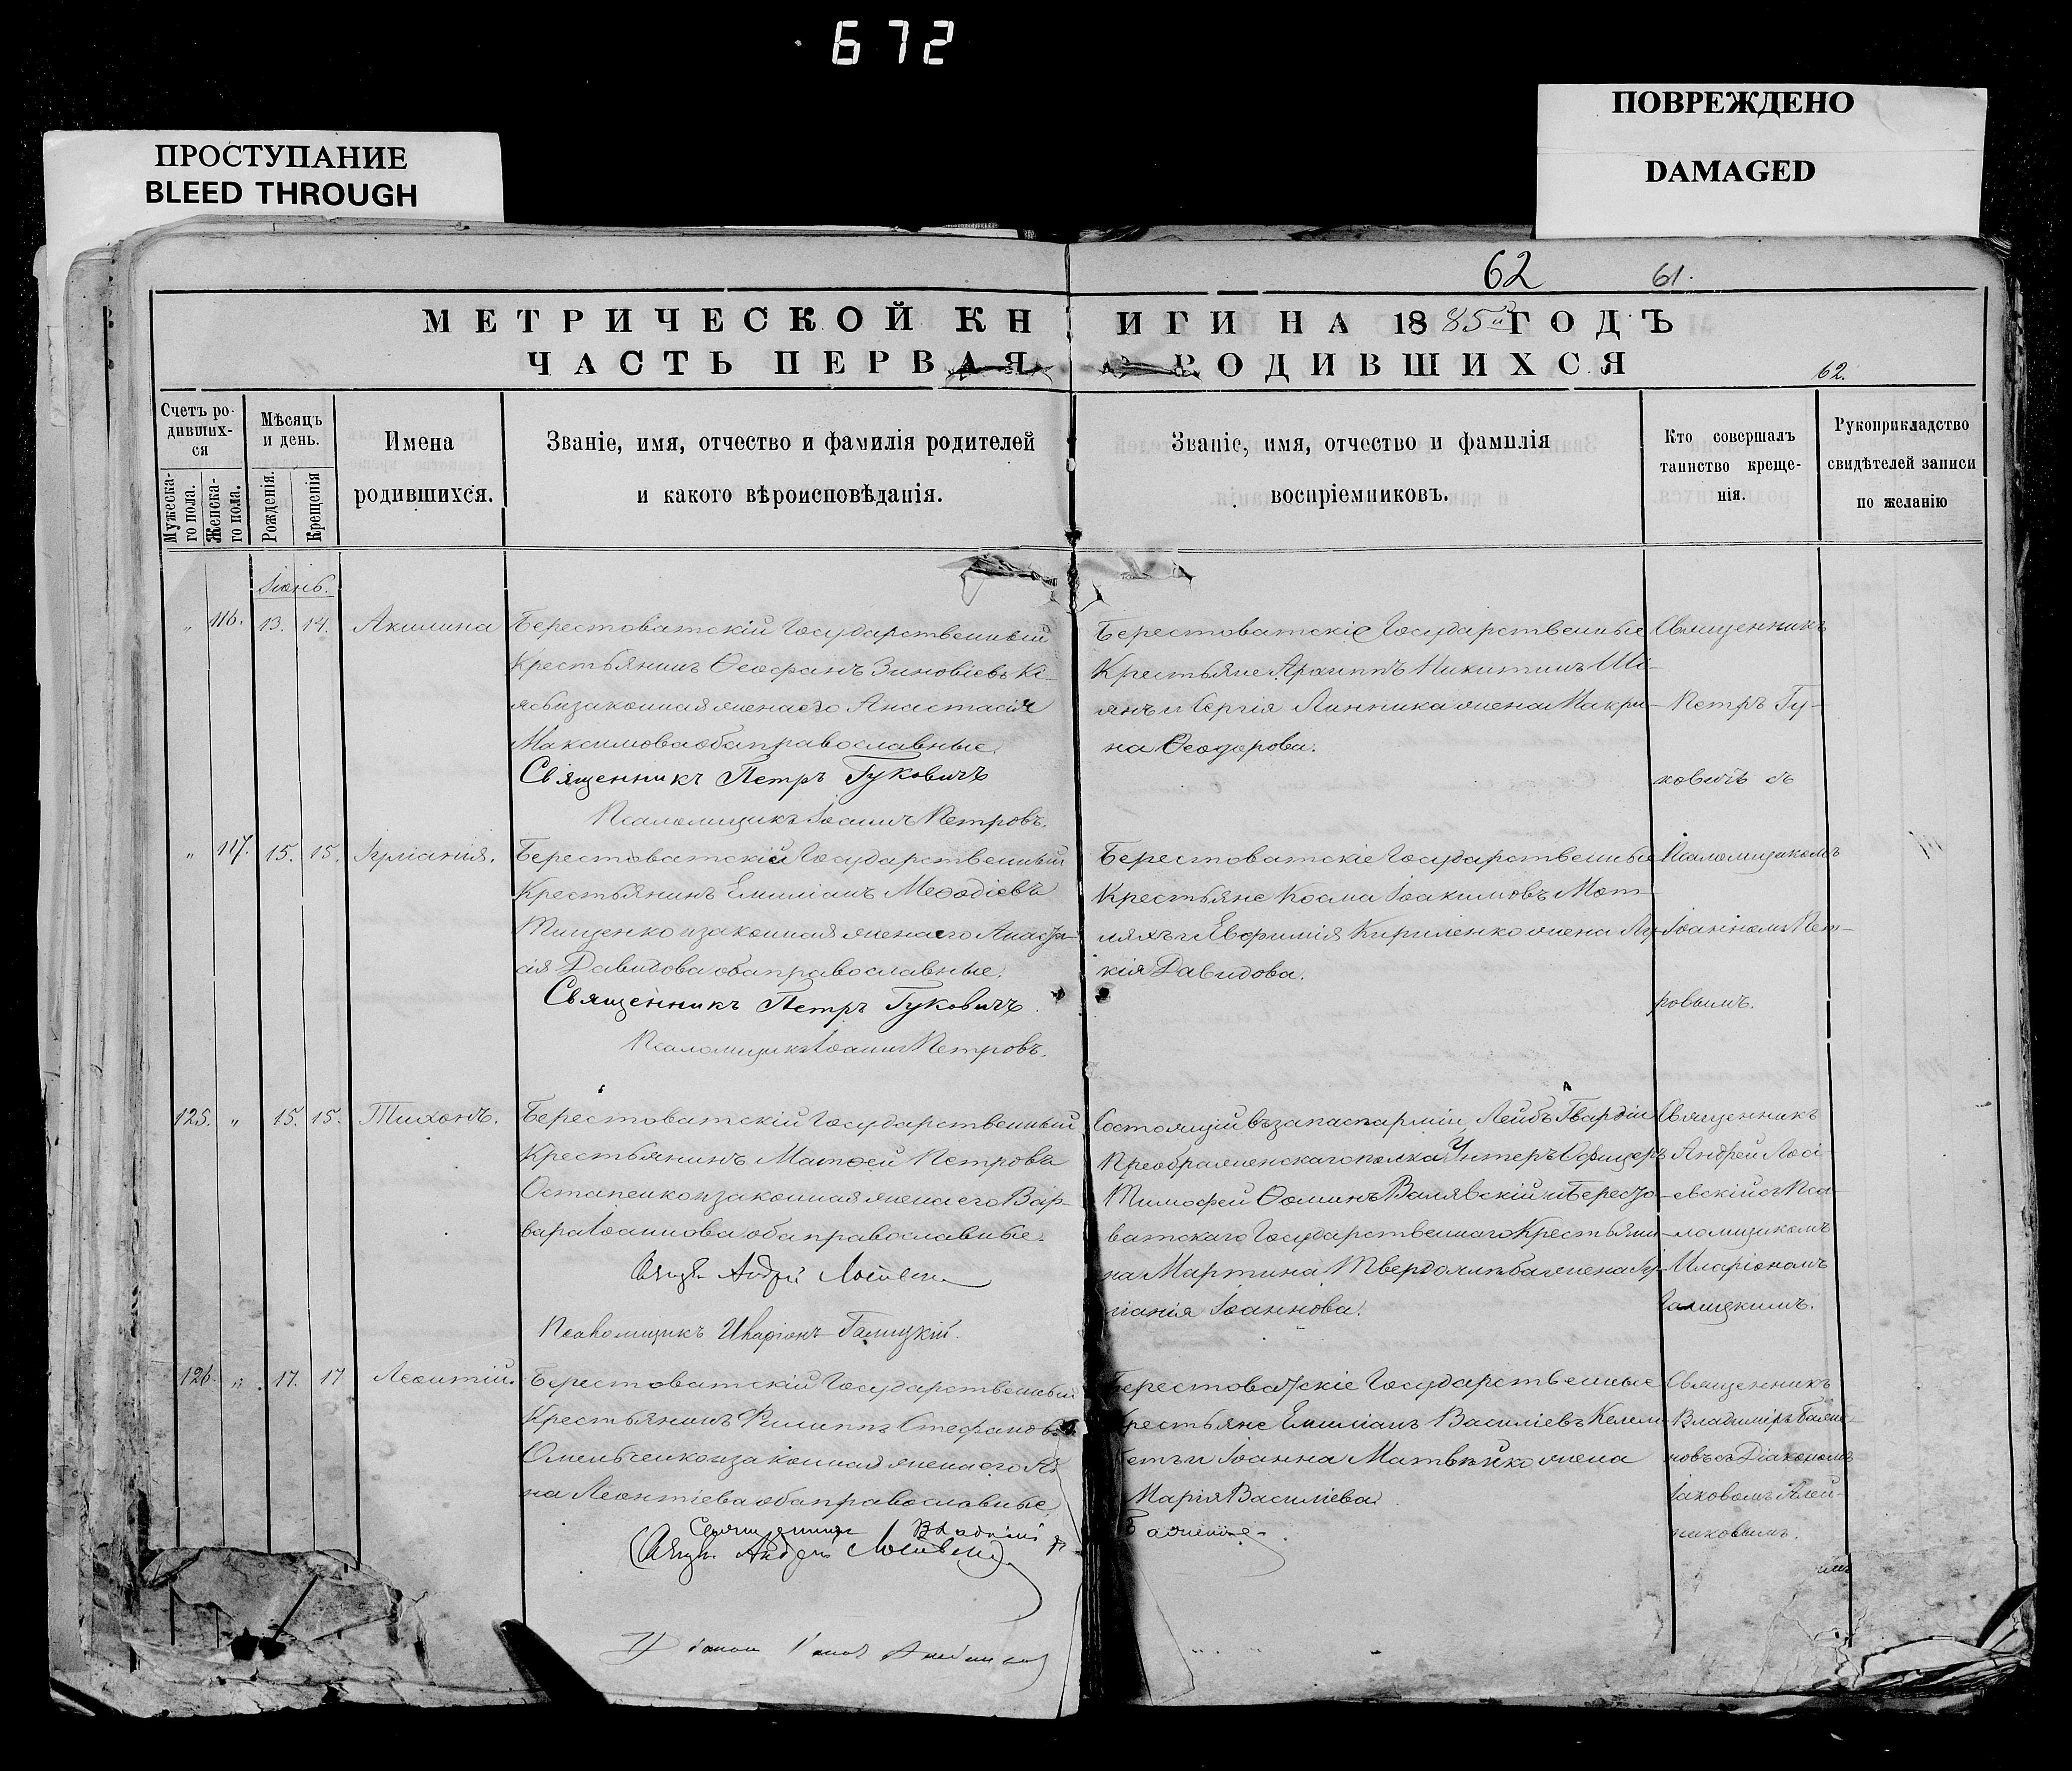 672
ПРОСТУПАНИЕ
BLEED THROUGH
ПОВРЕЖДЕНО
DAMAGED
62 61.
МЕТРИЧЕСКОЙ КНИГИ НА 1885й ГОДЪ
ЧАСТЬ ПЕРВАЯ РОДИВШИХСЯ
62.
Счетъ ро-
дивших-
ся
Мужеска-
го пола.
Женска-
го пола.
Мѣсяцъ
и день.
Рожденія.
Крещенія
Имена
родившихся.
Званіе, имя, отчество и фамилія родителей
и какого вѣроисповѣданія.
Званіе, имя, отчество и фамилія
воспріемниковъ.
Кто совершалъ
таинство креще-
нія.
Рукоприкладство
свидѣтелей записи
по желанію
Іюнь.
„ 116. 13. 14. Акилина
Берестоватскій Государственный
Крестьянинъ Ѳеофанъ Зиновіевъ Кі-
ясь и законная жена его Анастасія
Максимова оба православные.
Священникъ Петръ Гуковичъ
Псаломщикъ Іоаннъ Петровъ.
Берестоватскіе Государственные
Крестьяне Архиппъ Никитинъ Ші-
янъ и Сергія Линника жена Макри-
на Ѳеодорова.
Священникъ
Петръ Гу-
ковичъ съ
„ 117. 15. 15. Іуліанія.
Берестоватскій Государственный
Крестьянинъ Емиліанъ Меѳодіевъ
Тищенко и законная жена его Анаста-
сія Давидова оба православные.
Священникъ Петръ Гуковичъ.
Псаломщикъ Іоаннъ Петровъ.
Берестоватскіе Государственные
Крестьяне Косма Іоакимовъ Мот-
ляхъ и Евфимія Кириленко жена Лу-
кія Давидова.
Псаломщикомъ
Іоанномъ Пет-
ровымъ.
125. „ 15. 15. Тихонъ.
Берестоватскій Государственный
Крестьянинъ Матѳей Петровъ
Остапенко и законная жена его Вар-
вара Іоаннова оба православные.
Андрей
Псаломщикъ Иларіонъ Галицкій.
Состоящій въ запасѣ арміи, Лейбъ Гвардіи
Преображенскаго полка Унтеръ Офицеръ
Тимофей Ѳоминъ Валявскій и Бересто-
ватскаго Государственнаго Крестьяни-
на Мартина Твердохлѣба жена Іу-
ліанія Іоаннова.
Священникъ
Андрей Лосі-
евскій съ Пса-
ломщикомъ
Иларіономъ
Галицкимъ.
126. „ 17. 17 Леонтій.
Берестоватскій Государственный
Крестьянинъ Филиппъ Стефановъ
Омельченко и законная жена его Ан-
на Леонтіева оба православные
Священникъ Владимі
Андрей
Берестоватскіе Государственные
Крестьяне Емиліанъ Василіевъ
и Іоанна Матвѣйко жена
Марія Василіева.
Священникъ
Владиміръ
новъ съ Діакономъ
Іаковомъ Алей-
никовымъ.